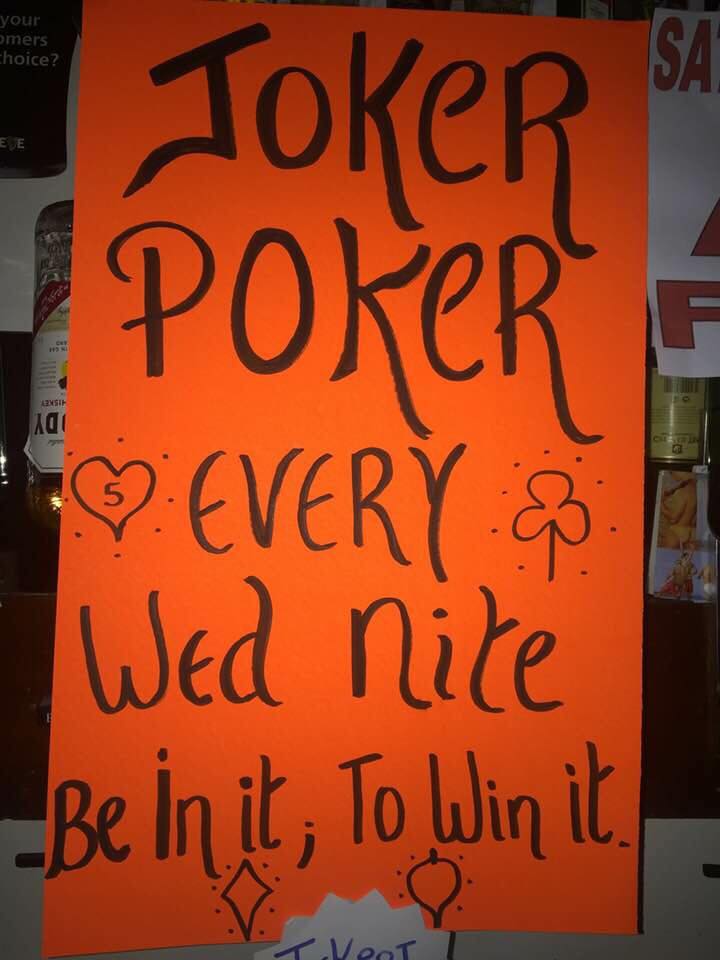 JOKER
POKER
5 EVERY
Wed nite
Be In it; To Win it.
your
omers
hoice?
SA
WHISKEY